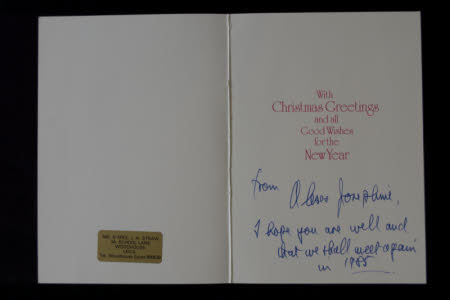 With
Christmas Greetings
and all
Good Wishes
for the
New Year
from Josephine,
I hope you are well and
that we shall meet again
in 1985
MR. & MRS. J. H. STRAW
SCHOOL LANE
WOODHOUSE
LEICS
Tel. Woodhouse Eaves